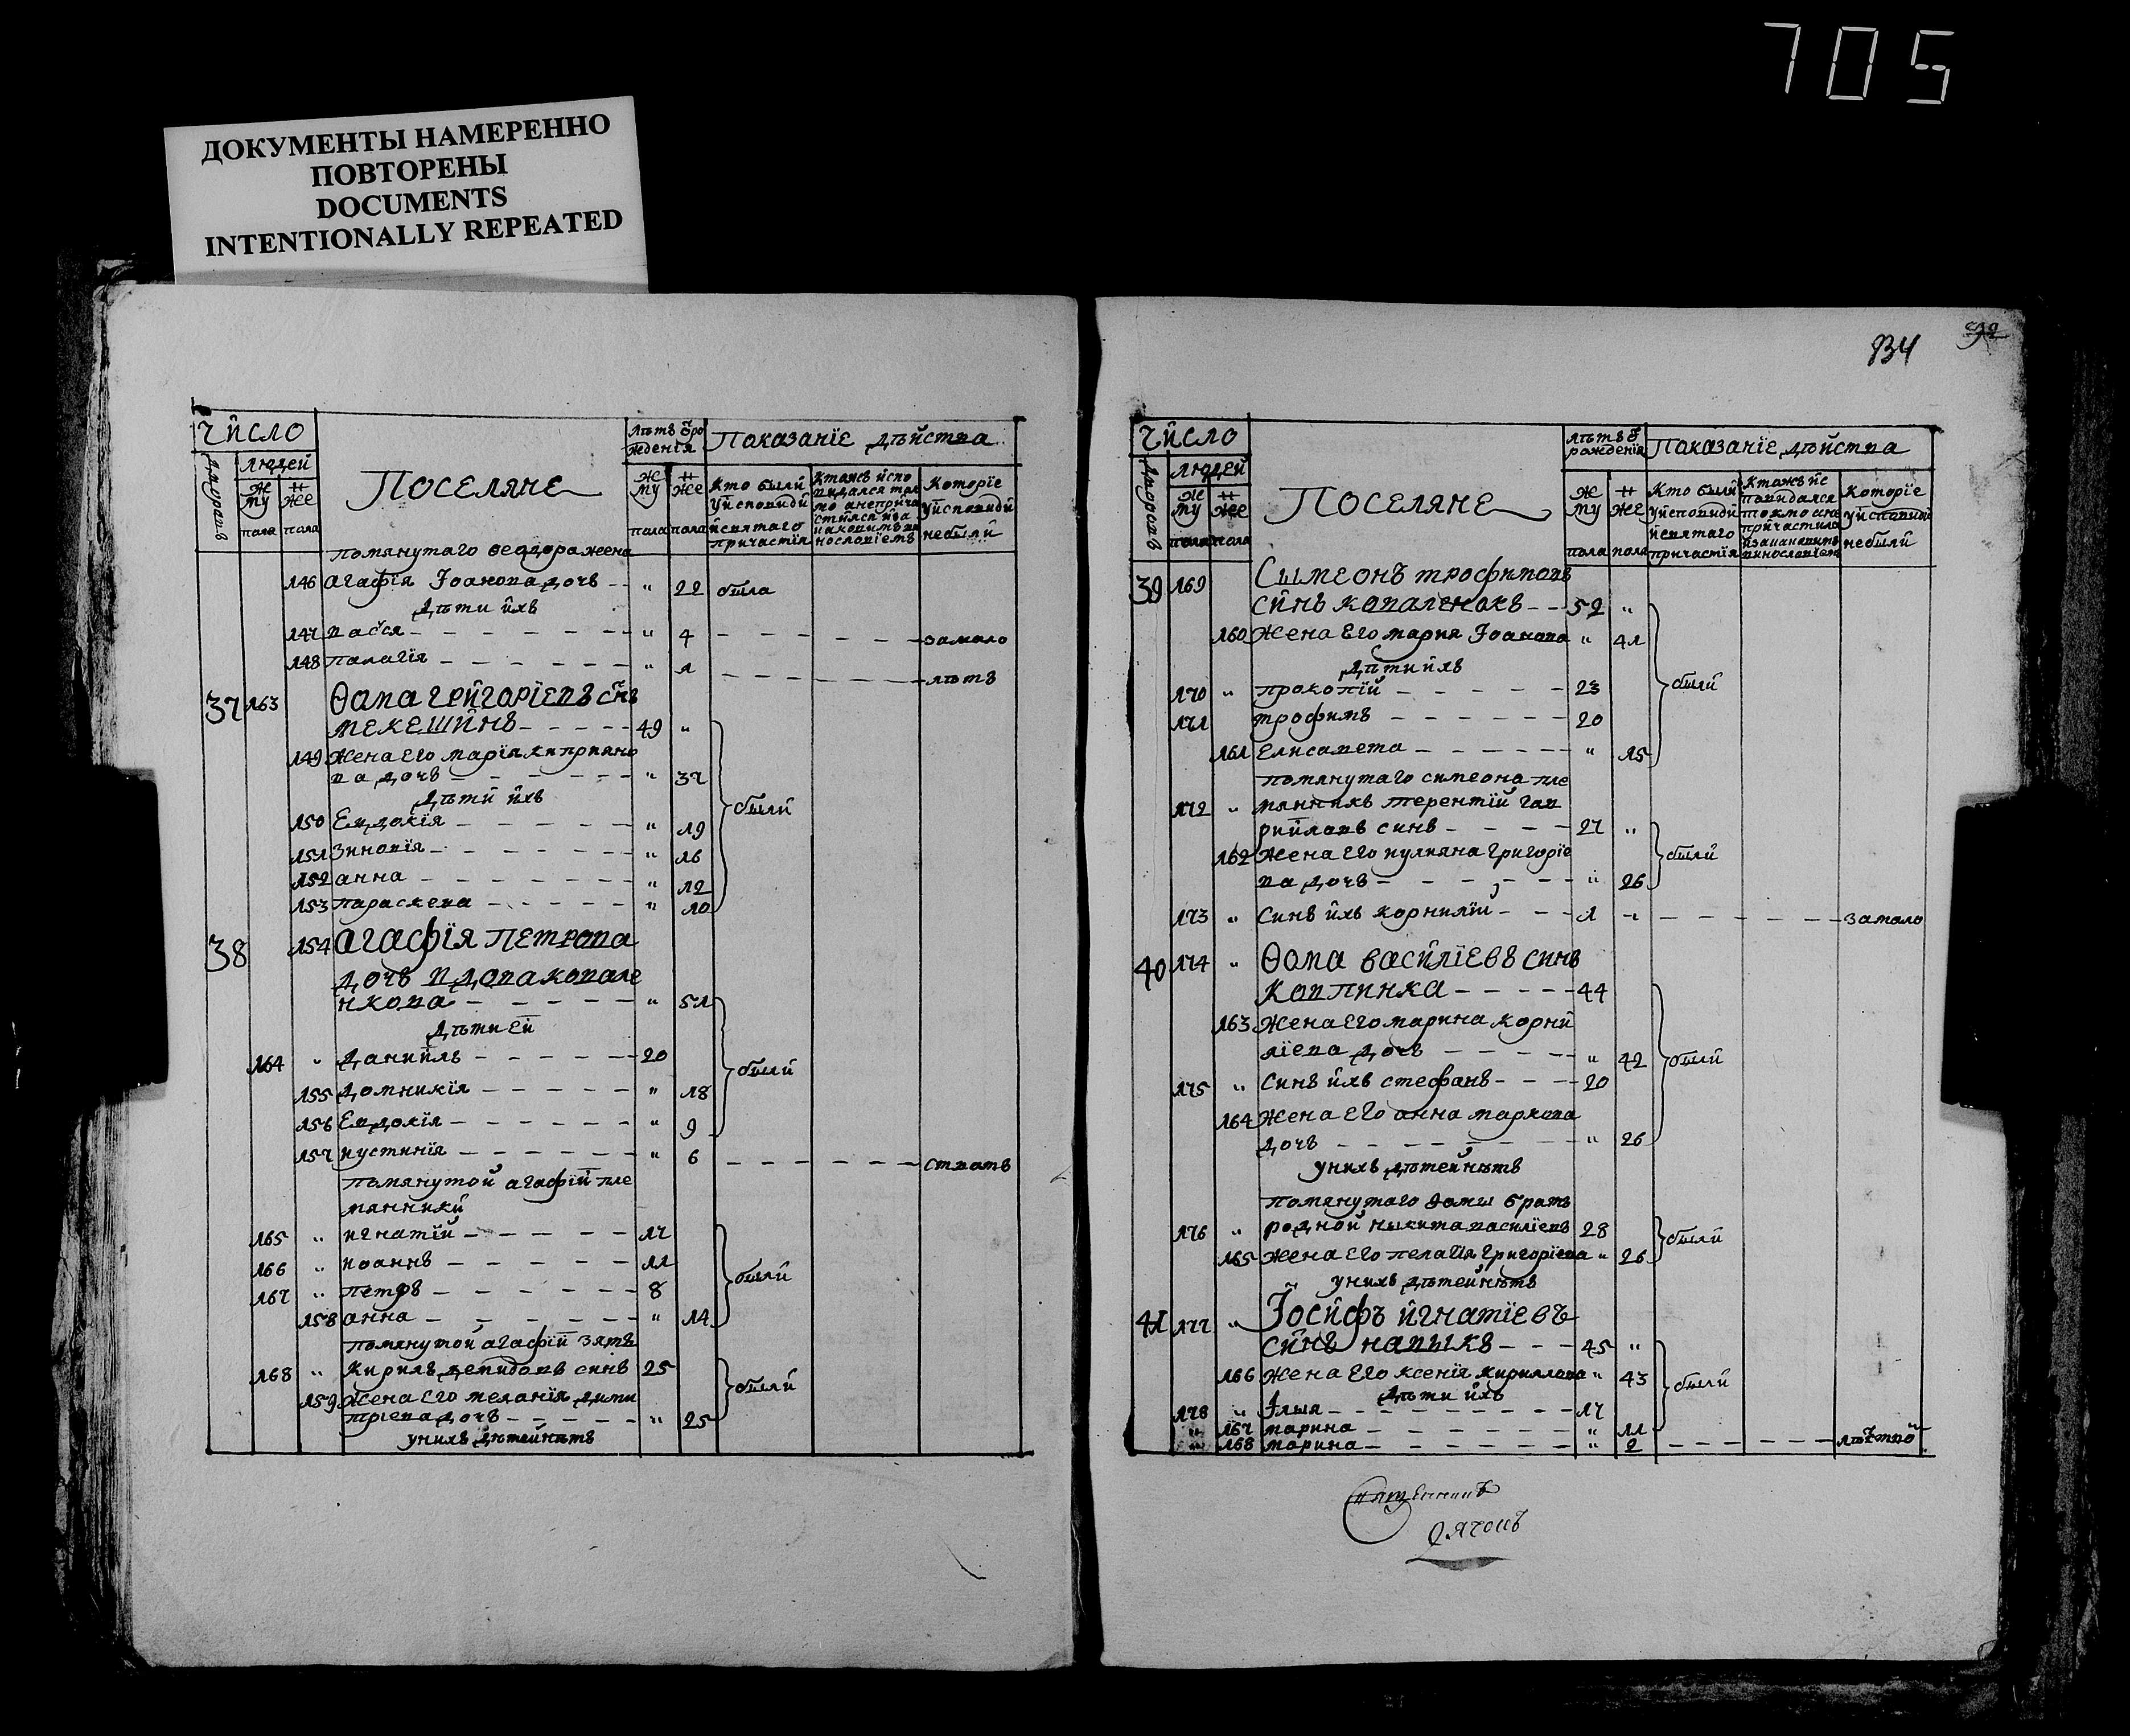 705
ДОКУМЕНТЫ НАМЕРЕННО
ПОВТОРЕНЫ
DOCUMENTS
INTENTIONALLY REPEATED
Число
людей
Дворовъ
му пола
же пола
Поселяне
лѣтъ ѿ рождения
му пола
же пола
Показанїе дѣйства
Кто были
у исповѣди
и святаго
причастїя
Которїе
у исповѣди
небыли
помянутаго Ѳеодора жена
146 агафїя Іоанова дочь - - " 22 была
дѣти ихъ
147 васся - - " 4 - - замало
148 палагїя - - " 1 - - лѣтъ
37 163 Ѳома григорїевъ снъ
мекешинъ - - 49 "
149 жена его марїя киприяно
ва дочь - - " 37
дѣти ихъ
150 Евдокїя - - " 19 были
151 Зиновїя - - " 16
152 анна - - " 12
153 параскева - - " 10
38 154 агафїя петрова
дочь вдова ковале
нкова - - " 51
дѣти ей
164 " данїилъ - - 20 были
155 домникїя - - " 18
156 Евдокїя - - " 9
157 иустинїя - - " 6
помянутой агафїй пле
мянники
165 " игнатїй - - 17
166 " иоаннъ - - 11 были
167 " петръ - - 8
158 анна - - " 14
помянутой агафїй зять
168 " кирилъ демидовъ синъ 25 были
159 жена его меланїя дими
трїева дочь - - " 25
унихъ дѣтей нѣтъ
134
Число
людей
Дворовъ
му пола
же пола
Поселяне
лѣтъ ѿ
рожденїя
му пола
же пола
Показанїе дѣйства
Кто были
у исповѣди
и святаго
причастїя
Которїе
у исповѣди
небыли
39 169 Сымеонъ трофимовъ
синъ коваленокъ - - 52 "
160 жена его мария Іоанова " 41
дѣти ихъ
170 " прокопїй - - 23 были
171 трофимъ - - 20
161 елисавета - - " 15
помянутаго симеона пле
172 " мянникъ терентїй гав
рииловъ синъ - - 27 "
162 жена его иулияна григорїе были
ва дочь - - " 26
173 " синъ ихъ корнилїй - - 1 - - замало
40 174 " Ѳома василїевъ синъ
ковпинка - - 44
163 жена его марина корни
лїева дочь - - " 42 были
175 " синъ ихъ стефанъ - - 20
164 жена его анна маркова
дочь - - " 26
унихъ дѣтей нѣтъ
помянутаго Ѳомы братъ
176 " родной никита василїевъ 28 были
165 жена его пелагїя григорїева " 26
унихъ дѣтей нѣтъ
41 177 " Іосифъ игнатїевъ
синъ навыкъ - - 45 "
166 жена его ксенїя кириллова " 43 были
дѣти ихъ
178 " Ілия - - 17
" 167 марина - - " 11
" 168 марина - - " 2